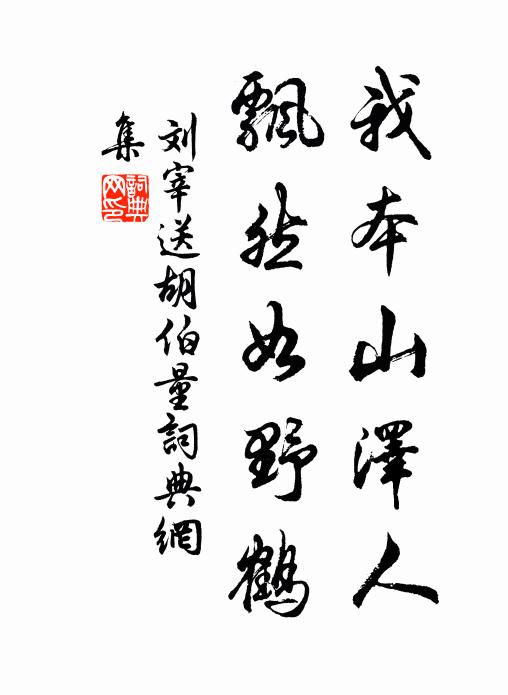 我本山澤人
飄然如野鶴
刘宰送胡伯量詞典網
集
詞典
网印